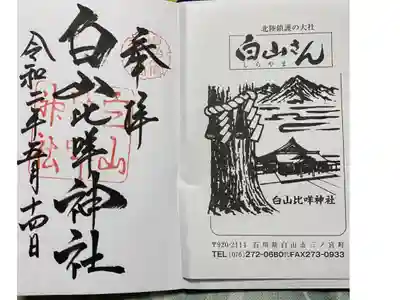 奉拝
白山比咩神社
令和二年五月十四日
北陸鎮護の大社
白山さん
しらやま
白山比咩神社
〒920-2114 石川県白山市三ノ宮町
TEL(076)272-0680㈹FAX273-0933